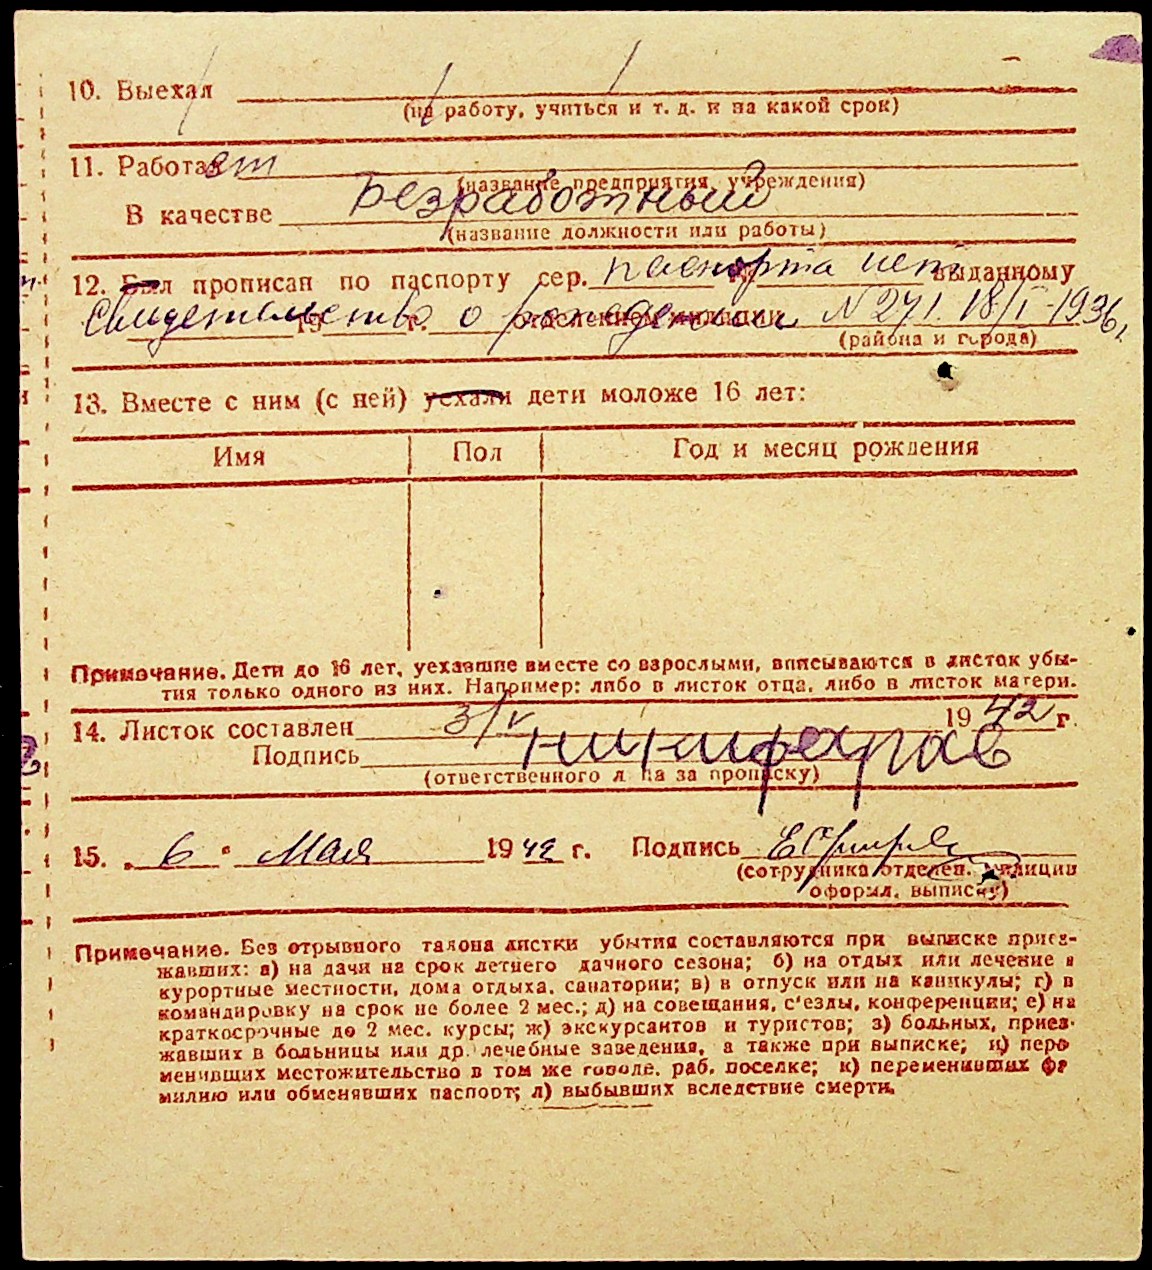 10. Выехал
(на работу, учиться и т. д. и на какой срок)
11. Работает
(название предприятия, учреждения)
В качестве Безработный
(название должности или работы)
12. Был прописан по паспорту сер. паспорта нет выданному
Свидетельство о рождении N 271. 18/I-1936 г.
19 г. отделением милиции
(района и города)
13. Вместе с ним (с ней) уехали дети моложе 16 лет:
Имя Пол Год и месяц рождения
Примечание. Дети до 16 лет, уехавшие вместе со взрослыми, вписываются в листок убы-
тия только одного из них. Например: либо в листок отца, либо в листок матери.
14. Листок составлен 3/V 1942 г.
Подпись
(ответственного лица за прописку)
15. „6" Мая 1942 г. Подпись
(сотрудника отделен. милиции
оформл. выписку)
Примечание. Без отрывного талона листки убытия составляются при выписке приез-
жавших: а) на дачи на срок летнего дачного сезона; б) на отдых или лечение в
курортные местности, дома отдыха, санатории; в) в отпуск или на каникулы; г) в
командировку на срок не более 2 мес.; д) на совещания, с'езды, конференции; е) на
краткосрочные до 2 мес. курсы; ж) экскурсантов и туристов; з) больных, приез-
жавших в больницы или др. лечебные заведения, а также при выписке; и) пере
менивших местожительство в том же городе, раб. поселке; к) переменивших фа
милию или обменявших паспорт; л) выбывших вследствие смерти.